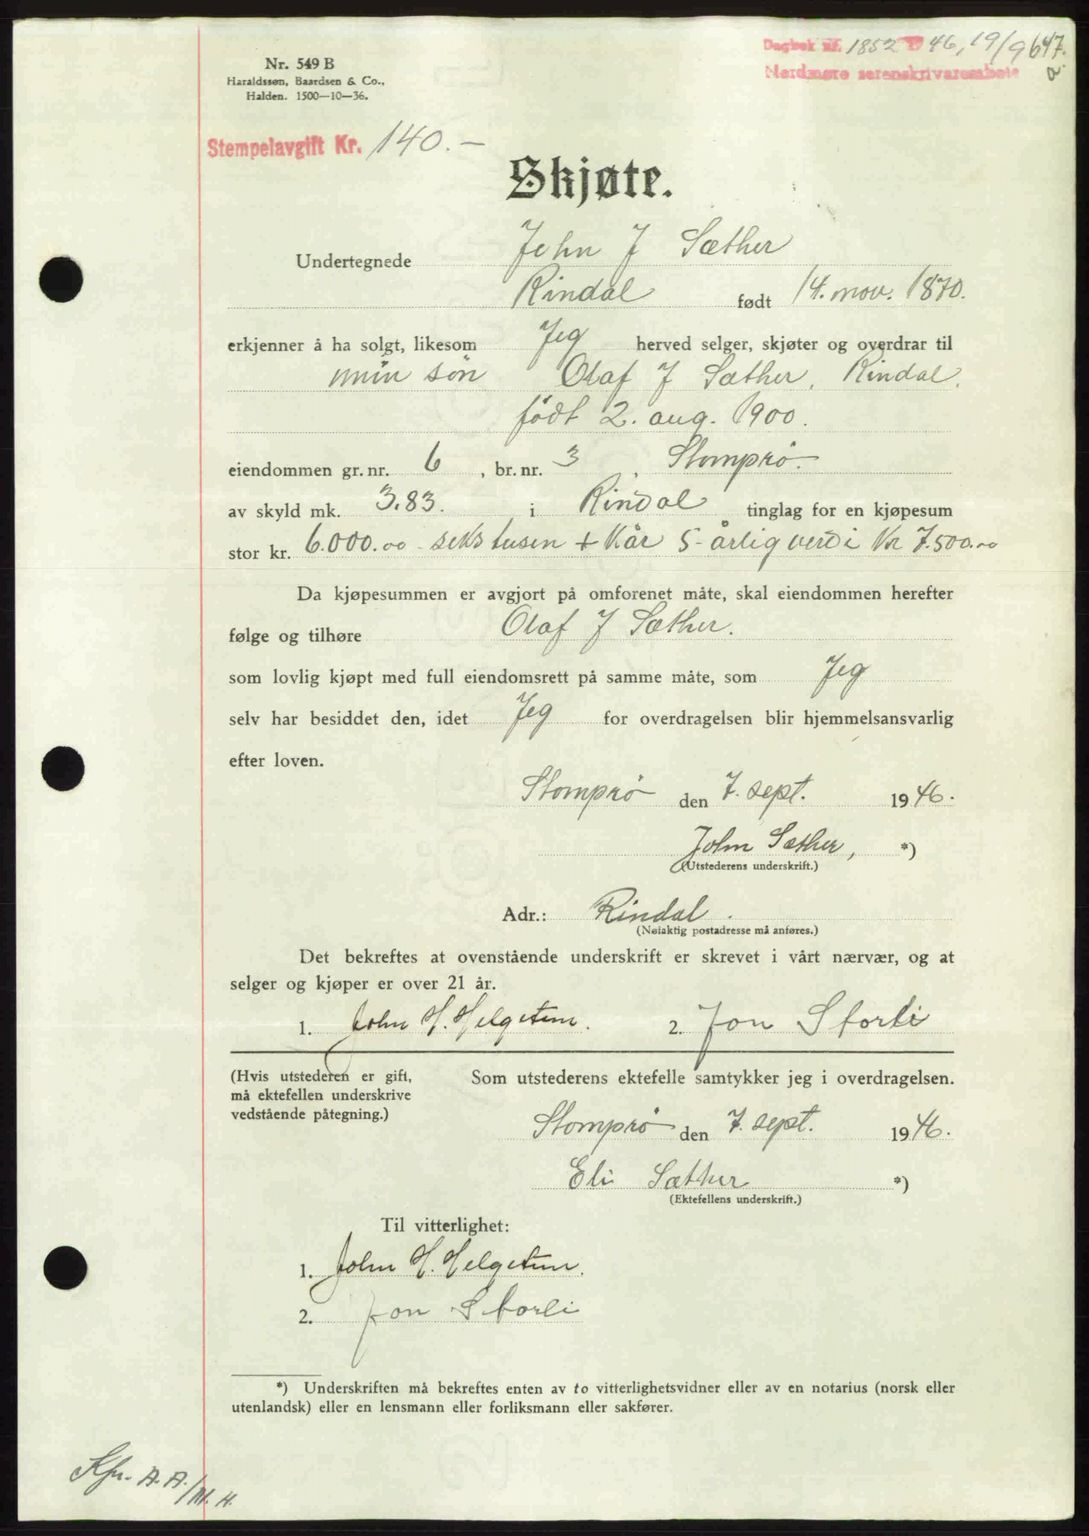 Dagbok nr. 1852 19 46, 19/9 647.
Nordmøre sorenskrivarembete
Nr. 549 B
Haraldssøn, Baardsen & Co.,
Halden. 1500—10—36.
Stempelavgift Kr. 140.—
Skjøte.
Undertegnede John J Sæther
Rindal født 14. nov. 1870.
erkjenner å ha solgt, likesom Jeg herved selger, skjøter og overdrar til
min søn Olaf J Sæther, Rindal.
født 2. aug. 1900.
eiendommen gr. nr. 6, br. nr. 3, Stomprø.
av skyld mk. 3.83. i Rindal tinglag for en kjøpesum
stor kr. 6.000.00 - seks tusen + kår 5-årlig verdi Kr 7.500.00
Da kjøpesummen er avgjort på omforenet måte, skal eiendommen herefter
følge og tilhøre Olaf J Sæther.
som lovlig kjøpt med full eiendomsrett på samme måte, som Jeg
selv har besiddet den, idet Jeg for overdragelsen blir hjemmelsansvarlig
efter loven.
Stomprø den 7. sept. 1946.
John Sæther, *)
(Utstederens underskrift.)
Adr.: Rindal.
(Nøiaktig postadresse må anføres.)
Det bekreftes at ovenstående underskrift er skrevet i vårt nærvær, og at
selger og kjøper er over 21 år.
1. John H. Helgetun. 2. Jon Storli
(Hvis utstederen er gift,
må ektefellen underskrive
vedstående påtegning.)
Som utstederens ektefelle samtykker jeg i overdragelsen.
Stomprø den 7. sept. 1946.
Eli Sæther *)
(Ektefellens underskrift.)
Til vitterlighet:
1. John H. Helgetun.
2. Jon Storli
*) Underskriften må bekreftes enten av to vitterlighetsvidner eller av en notarius (norsk eller
utenlandsk) eller en lensmann eller forliksmann eller sakfører.
Kfr. A.A./M.H.